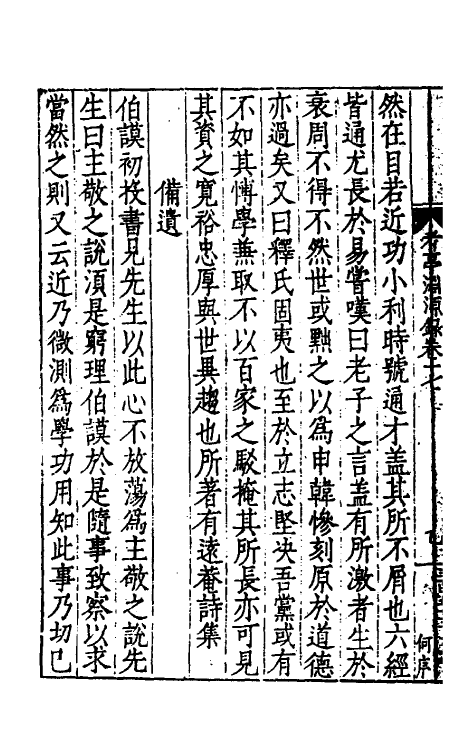 考亭淵源錄卷十七
何序
然在目若近功小利時號通才盖其所不屑也六經
皆通尤長於易嘗嘆曰老子之言盖有所激者生於
衰周不得不然世或黜之以為申韓慘刻原於道德
亦過矣又曰釋氏固夷也至於立志堅决吾黨或有
不如其愽學兼取不以百家之駁掩其所長亦可見
其資之寛裕忠厚與世異趨也所著有遠菴詩集
備遺
伯謨初投書見先生以此心不放蕩爲主敬之說先
生曰主敬之說湏是窮理伯謨於是隨事致察以求
當然之則又云近乃微測爲學功用知此事乃切己